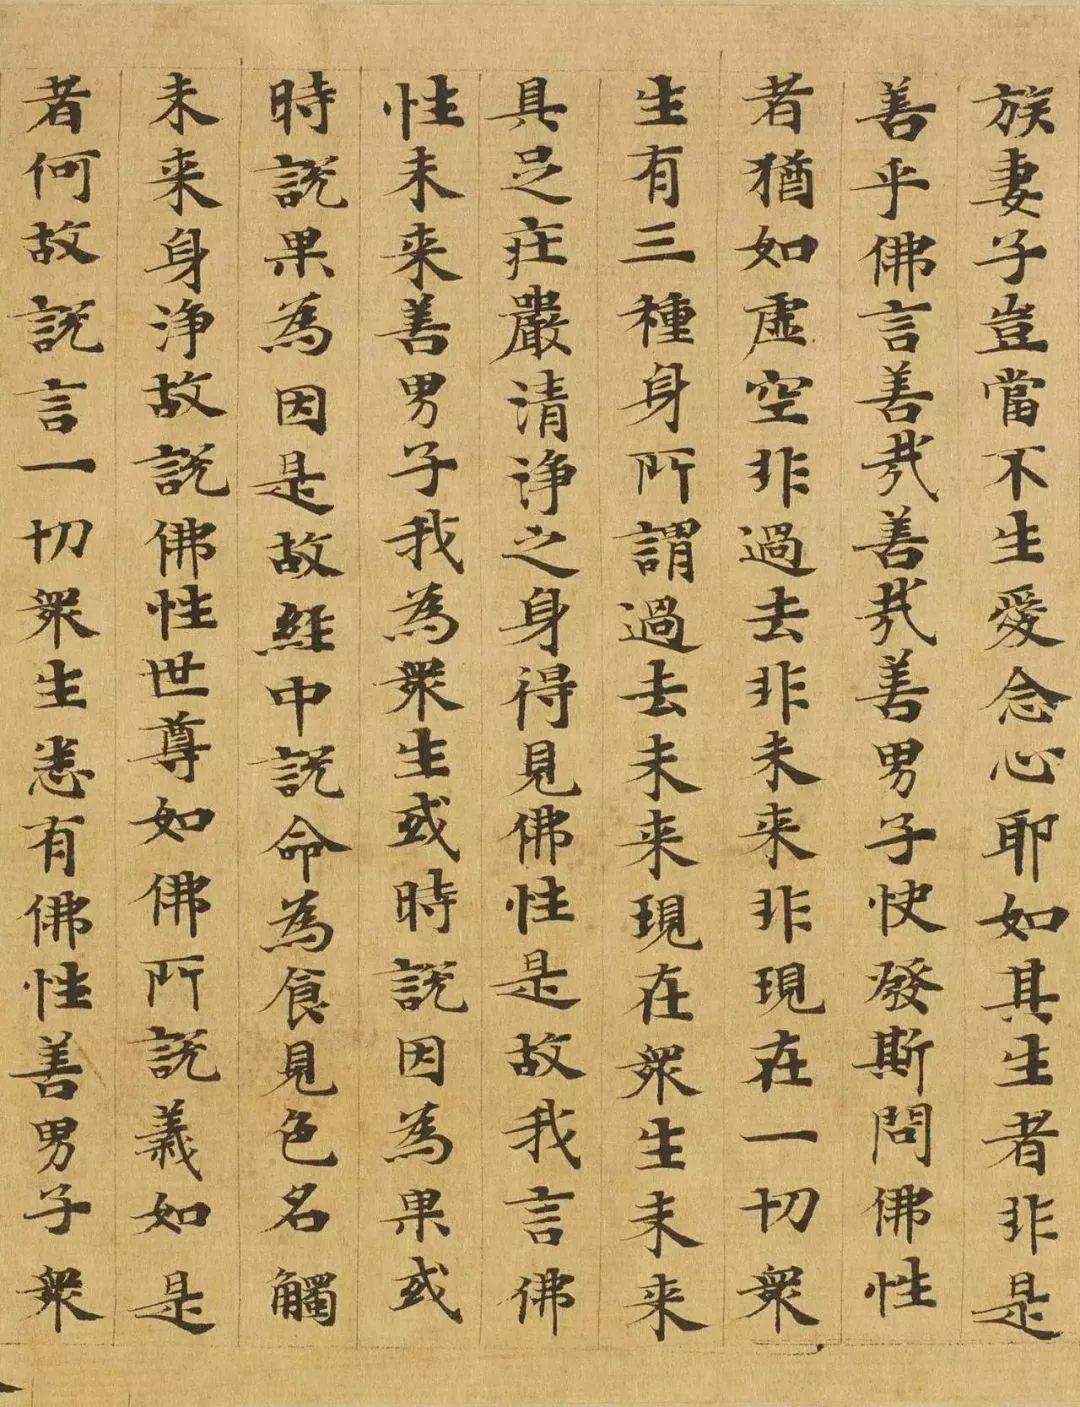 族妻子豈當不生愛念心耶如其生者非是
善乎佛言善哉善哉善男子快發斯問佛性
者猶如虛空非過去非未來非現在一切眾
生有三種身所謂過去未來現在眾生未來
具足莊嚴清淨之身得見佛性是故我言佛
性未來善男子我為眾生或時說因為果或
時說果為因是故經中說命為食見色名觸
未來身淨故說佛性世尊如佛所說義如是
者何故說言一切眾生悉有佛性善男子眾